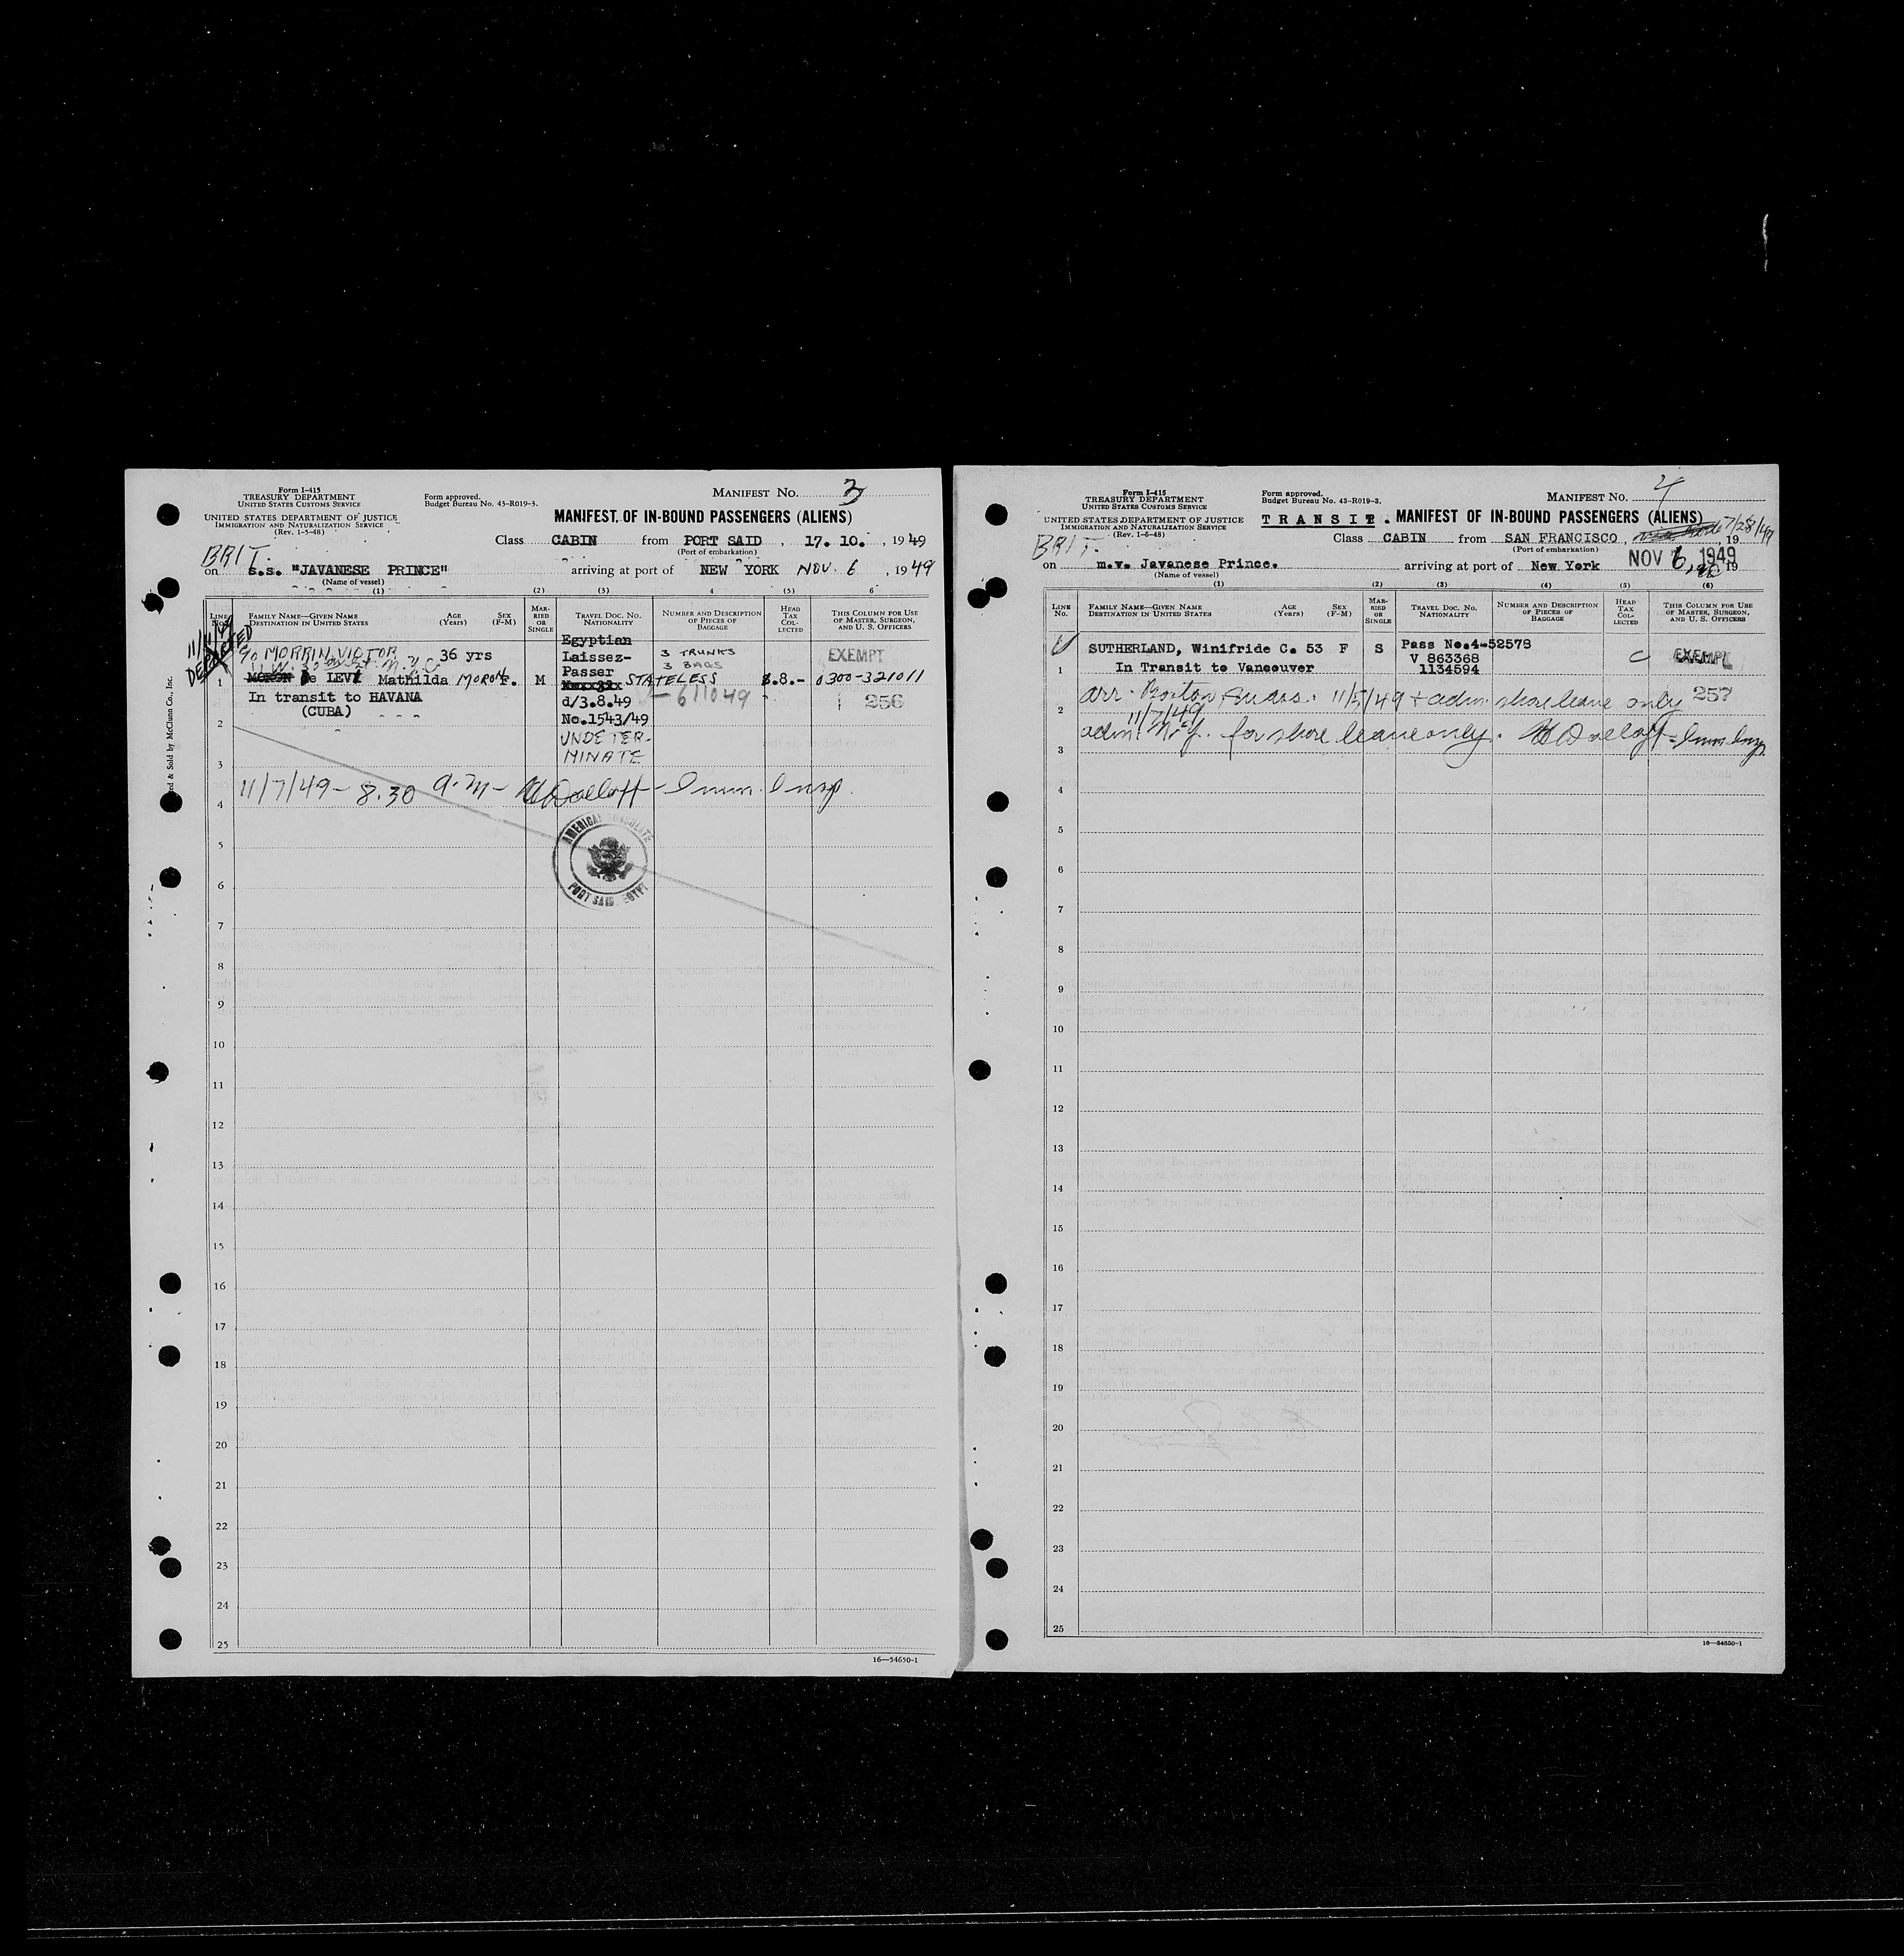 Form I-415
TREASURY DEPARTMENT
UNITED STATES CUSTOMS SERVICE
UNITED STATES DEPARTMENT OF JUSTICE
IMMIGRATION AND NATURALIZATION SERVICE
(Rev. 1-5-48)
Form approved.
Budget Bureau No. 43-R019-3.
MANIFEST No. 3
MANIFEST OF IN-BOUND PASSENGERS (ALIENS)
Class CABIN from PORT SAID, 17. 10., 1949
(Port of embarkation)
BRIT.
on s.s. "JAVANESE PRINCE" arriving at port of NEW YORK NOV. 6, 1949
(Name of vessel)
(1) (2) (3) 4 (5) 6
LINE No.
FAMILY NAME—GIVEN NAME
DESTINATION IN UNITED STATES
AGE (Years)
SEX (F-M)
MARRIED OR SINGLE
TRAVEL DOC. NO.
NATIONALITY
NUMBER AND DESCRIPTION OF PIECES OF BAGGAGE
HEAD TAX COLLECTED
THIS COLUMN FOR USE OF MASTER, SURGEON, AND U. S. OFFICERS
DEPARTED
MORRIN, VICTOR 36 yrs
Egyptian
Laissez-
Passer
3 TRUNKS
3 BAGS
EXEMPT
1 MORON De LEVI Mathilda MORON F. M STATELESS $.8.- 0300-321011
In transit to HAVANA
(CUBA)
d/3.8.49
No.1543/49
611049
256
UNDETER-
MINATE
2
3
11/7/49 - 8.30 a.m -
4
AMERICAN CONSULATE
PORT SAID, EGYPT
5
6
7
8
9
10
11
12
13
14
15
16
17
18
19
20
21
22
23
24
25
16—54650-1
ed & Sold by McClunn Co., Inc.
Form I-415
TREASURY DEPARTMENT
UNITED STATES CUSTOMS SERVICE
UNITED STATES DEPARTMENT OF JUSTICE
IMMIGRATION AND NATURALIZATION SERVICE
(Rev. 1-6-48)
Form approved.
Budget Bureau No. 43-R019-3.
MANIFEST No. 4
TRANSIT. MANIFEST OF IN-BOUND PASSENGERS (ALIENS)
Class CABIN from SAN FRANCISCO, 7/28/49, 19
(Port of embarkation)
BRIT.
on m.v. Javanese Prince. arriving at port of New York NOV 6, 1949 19
(Name of vessel)
(1) (2) (3) (4) (5) (6)
LINE No.
FAMILY NAME—GIVEN NAME
DESTINATION IN UNITED STATES
AGE (Years)
SEX (F-M)
MARRIED OR SINGLE
TRAVEL DOC. NO.
NATIONALITY
NUMBER AND DESCRIPTION OF PIECES OF BAGGAGE
HEAD TAX COLLECTED
THIS COLUMN FOR USE OF MASTER, SURGEON, AND U. S. OFFICERS
SUTHERLAND, Winifride C. 53 F S Pass No.4-52578
V 863368
1134594
EXEMPT
1 In Transit to Vancouver
arr. Boston Mass. 11/5/49 + adm. shore leave only 257
2
11/7/49
adm. N.Y. for shore leave only.
3
4
5
6
7
8
9
10
11
12
13
14
15
16
17
18
19
20
21
22
23
24
25
16—54650-1